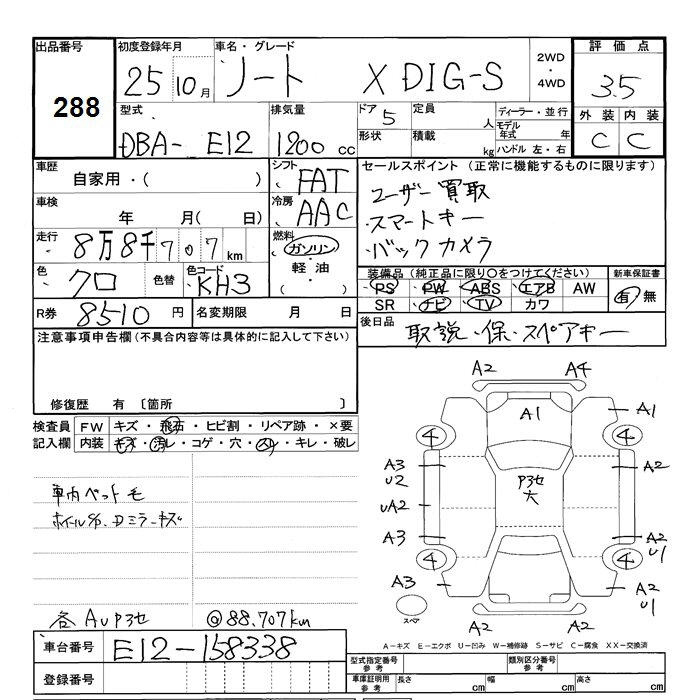 出品番号 初度登録年月 車名・グレード 2WD・4WD 評価点
288 25 10月 ノート X DIG-S 3.5
型式 排気量 ドア 5 定員 人 ディーラー・並行 外装 内装
モデル年式 年
DBA- E12 1200cc 形状 積載 kg ハンドル 左・右 C C
車歴 自家用・( ) シフト FAT セールスポイント (正常に機能するものに限ります)
車検 年 月( 日) 冷房 AAC ・ユーザー買取
・スマートキー
走行 8万8千707km 燃料 ガソリン・軽油・( ) ・バックカメラ
色 クロ 色替 色コード KH3 装備品 (純正品に限り○をつけてください) 新車保証書
・PS・PW・ABS・エアB・AW 有・無
SR・ナビ・TV・カワ
R券 8510円 名変期限 月 日 後日品 取説・保・スペアキー
注意事項申告欄 (不具合内容等は具体的に記入して下さい)
修復歴 有 〔箇所 〕
検査員記入欄 FW キズ・飛石・ヒビ割・リペア跡・×要
内装 キズ・汚レ・コゲ・穴・スレ・キレ・破レ
車内ペット毛
ホイルS/O. Dミラーキズ
各AUP3セ @88.707km
A2 A4
A1 A1
4 4
A3 U2 P3セ 大 A2
UA2
A3 A2 U1
4 4
A3 A2 U1
スペア
A2 A2
A-キズ E-エクボ U-凹み W-補修跡 S-サビ C-腐食 XX-交換済
車台番号 E12-158338
型式指定番号 参考 類別区分番号 参考
登録番号 車庫証明用 参考 長さ cm 幅 cm 高さ cm